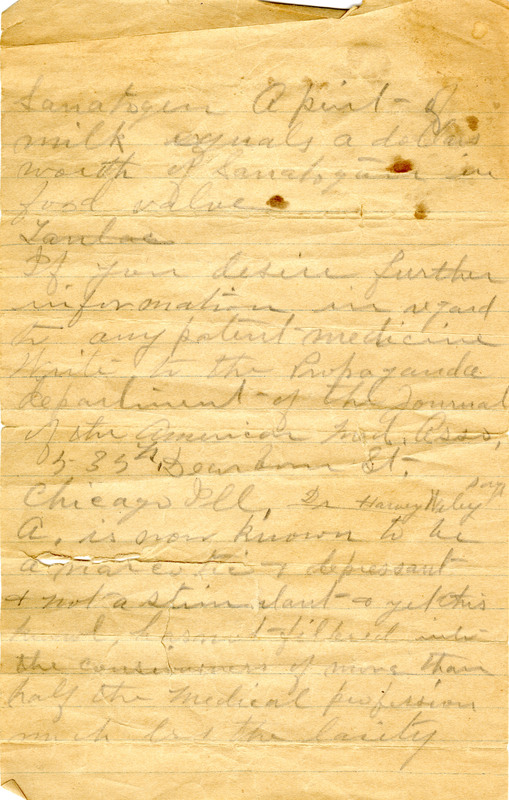 Sanatogen A pint of
milk equals a dollars
worth of Sanatogen in
food value
Tanlac
If you desire further
information in regard
to any patent medicine
Write to the Propaganda
department of the Journal
of the American Med. Asso,
535 N. Dearborn St.
Chicago Ill, Dr Harvey Wiley says
A. is now known to be
a narcotic & depressant
& not a stimulant & yet this
has not filtered into
the consciousness of more than
half the Medical profession
much less the laity